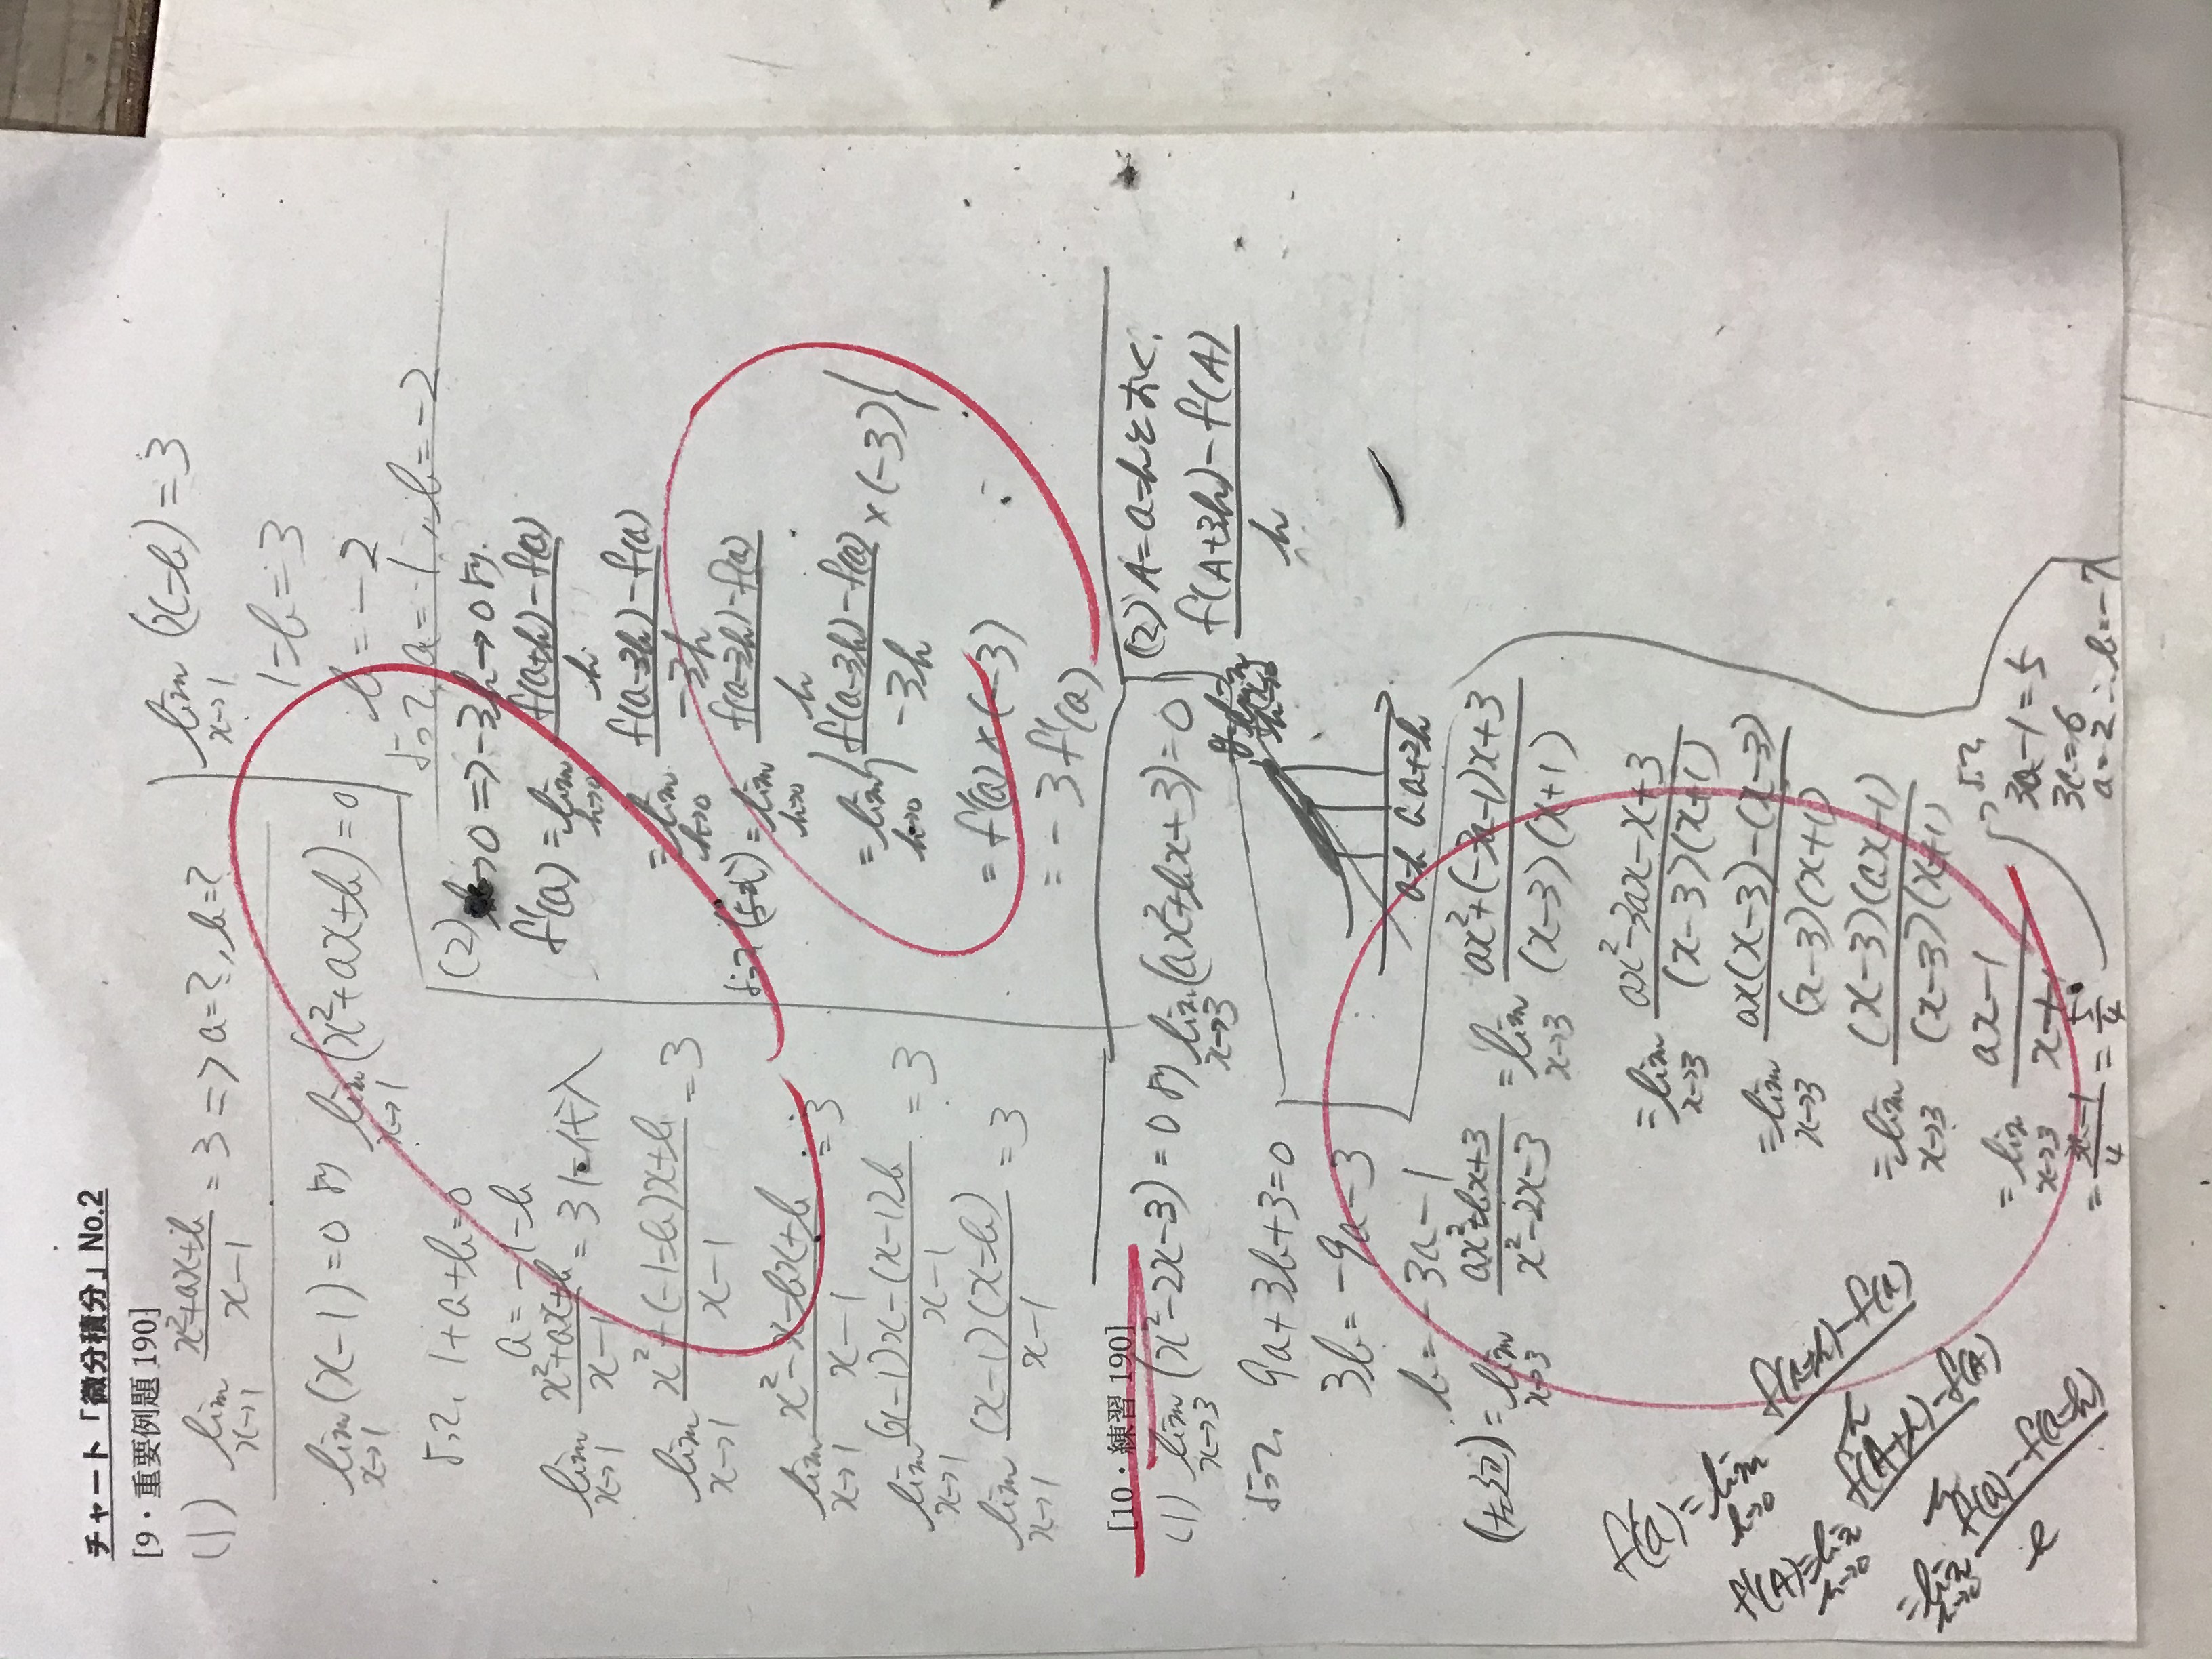 チャート「微分積分」No.2
[9・重要例題 190]
(1) lim x→1 (x²+ax+b)/(x-1) = 3 => a=?, b=?
lim x→1 (x-1)=0 より lim x→1 (x²+ax+b)=0
よって、 1+a+b=0
a=-1-b
lim x→1 (x²+ax+b)/(x-1) = 3 に代入
lim x→1 (x²+(-1-b)x+b)/(x-1) = 3
lim x→1 (x²-x-bx+b)/(x-1) = 3
lim x→1 ((x-1)x-(x-1)b)/(x-1) = 3
lim x→1 (x-1)(x-b)/(x-1) = 3
lim x→1 (x-b)=3
1-b=3
b=-2
よって、a=1, b=-2
(2) h→0 => -3h→0 より
f'(a) = lim h→0 (f(a+h)-f(a))/h
= lim h→0 (f(a-3h)-f(a))/(-3h)
よって(与式) = lim h→0 (f(a-3h)-f(a))/h
= lim h→0 { (f(a-3h)-f(a))/(-3h) ×(-3) }
= f'(a)×(-3)
= -3f'(a)
[10・練習 190]
(1) lim x→3 (x²-2x-3)=0 より lim x→3 (ax²+bx+3)=0
よって、 9a+3b+3=0
3b=-9a-3
b=-3a-1
(左辺) = lim x→3 (ax²+bx+3)/(x²-2x-3) = lim x→3 (ax²+(-3a-1)x+3)/((x-3)(x+1))
= lim x→3 (ax²-3ax-x+3)/((x-3)(x+1))
= lim x→3 (ax(x-3)-(x-3))/((x-3)(x+1))
= lim x→3 (x-3)(ax-1)/((x-3)(x+1))
= lim x→3 (ax-1)/(x+1)
= (3a-1)/4 = 5/4
よって
3a-1=5
3a=6
a=2 ∴ b=-7
(2) A=a-hとおく.
(f(A+3h)-f(A))/h
a-h a a+2h
f'(a) = lim h→0 (f(a+h)-f(a))/h
f'(A) = lim h→0 (f(A+h)-f(A))/h
= lim h→0 (f(a)-f(a-h))/h